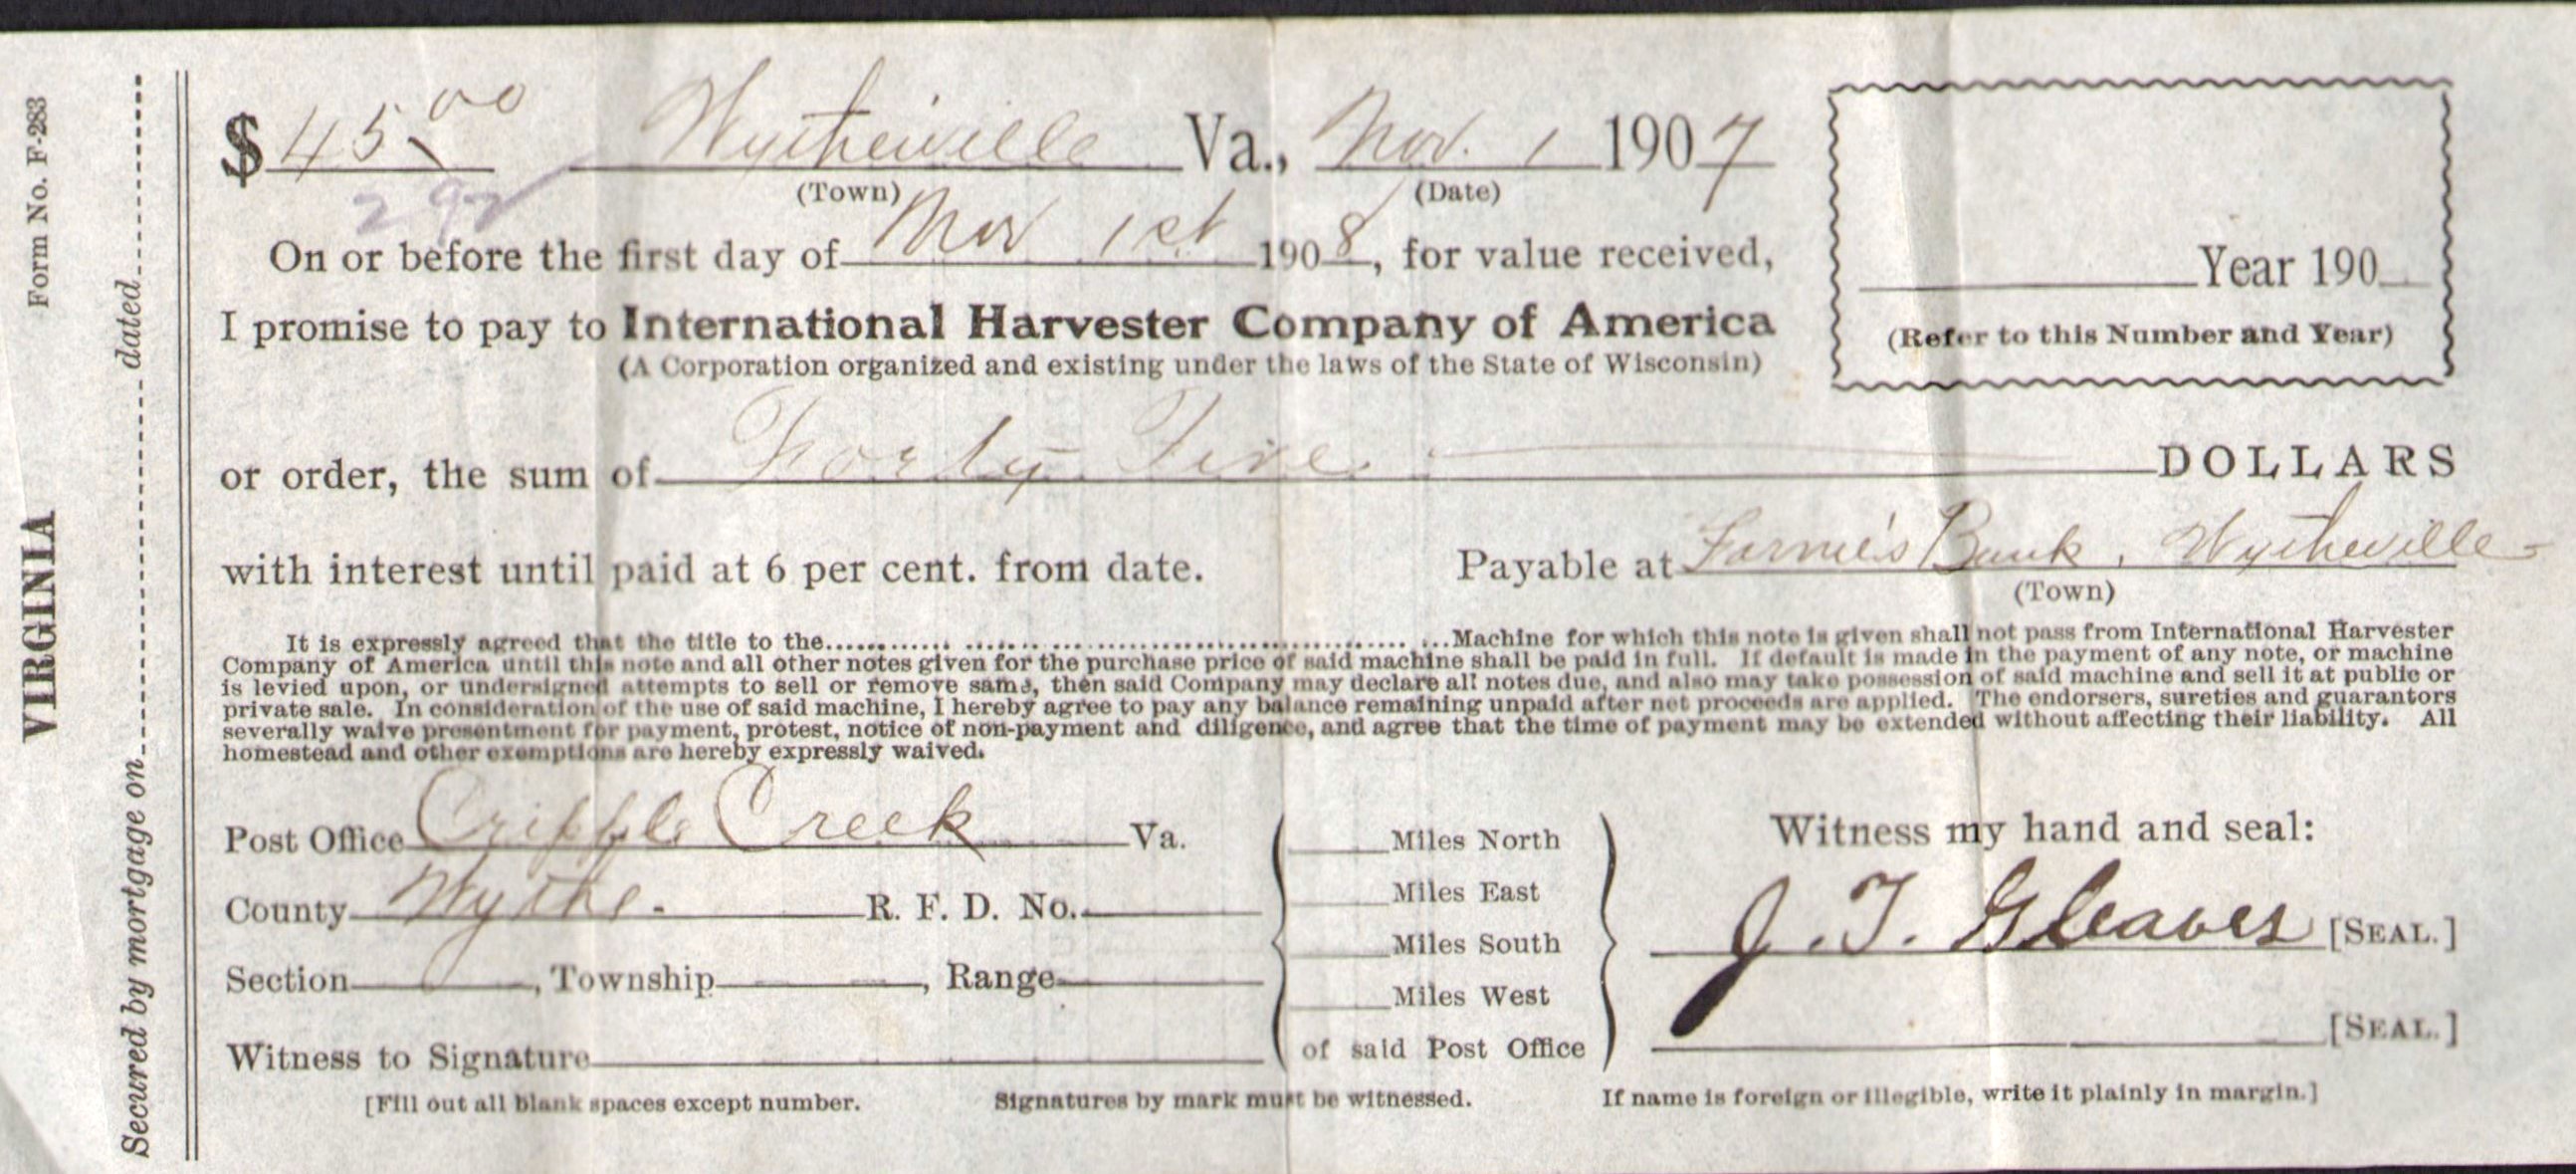 Form No. F-283
VIRGINIA
Secured by mortgage on dated
$ 45.00 Wytheville Va., Nov. 1 1907
(Town) (Date)
292
On or before the first day of Nov 1st 1908, for value received,
I promise to pay to International Harvester Company of America
(A Corporation organized and existing under the laws of the State of Wisconsin)
Year 190
(Refer to this Number and Year)
or order, the sum of Forty Five DOLLARS
with interest until paid at 6 per cent. from date. Payable at Bank, Wytheville
(Town)
It is expressly agreed that the title to the Machine for which this note is given shall not pass from International Harvester
Company of America until this note and all other notes given for the purchase price of said machine shall be paid in full. If default is made in the payment of any note, or machine
is levied upon, or undersigned attempts to sell or remove same, then said Company may declare all notes due, and also may take possession of said machine and sell it at public or
private sale. In consideration of the use of said machine, I hereby agree to pay any balance remaining unpaid after net proceeds are applied. The endorsers, sureties and guarantors
severally waive presentment for payment, protest, notice of non-payment and diligence, and agree that the time of payment may be extended without affecting their liability. All
homestead and other exemptions are hereby expressly waived.
Post Office Cripple Creek Va.
County Wythe. R. F. D. No.
Section , Township , Range
Witness to Signature
Miles North
Miles East
Miles South
Miles West
of said Post Office
Witness my hand and seal:
J. T. Gleaves [SEAL.]
[SEAL.]
[Fill out all blank spaces except number. Signatures by mark must be witnessed. If name is foreign or illegible, write it plainly in margin.]